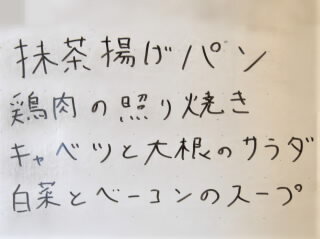 抹茶揚げパン
鶏肉の照り焼き
キャベツと大根のサラダ
白菜とベーコンのスープ